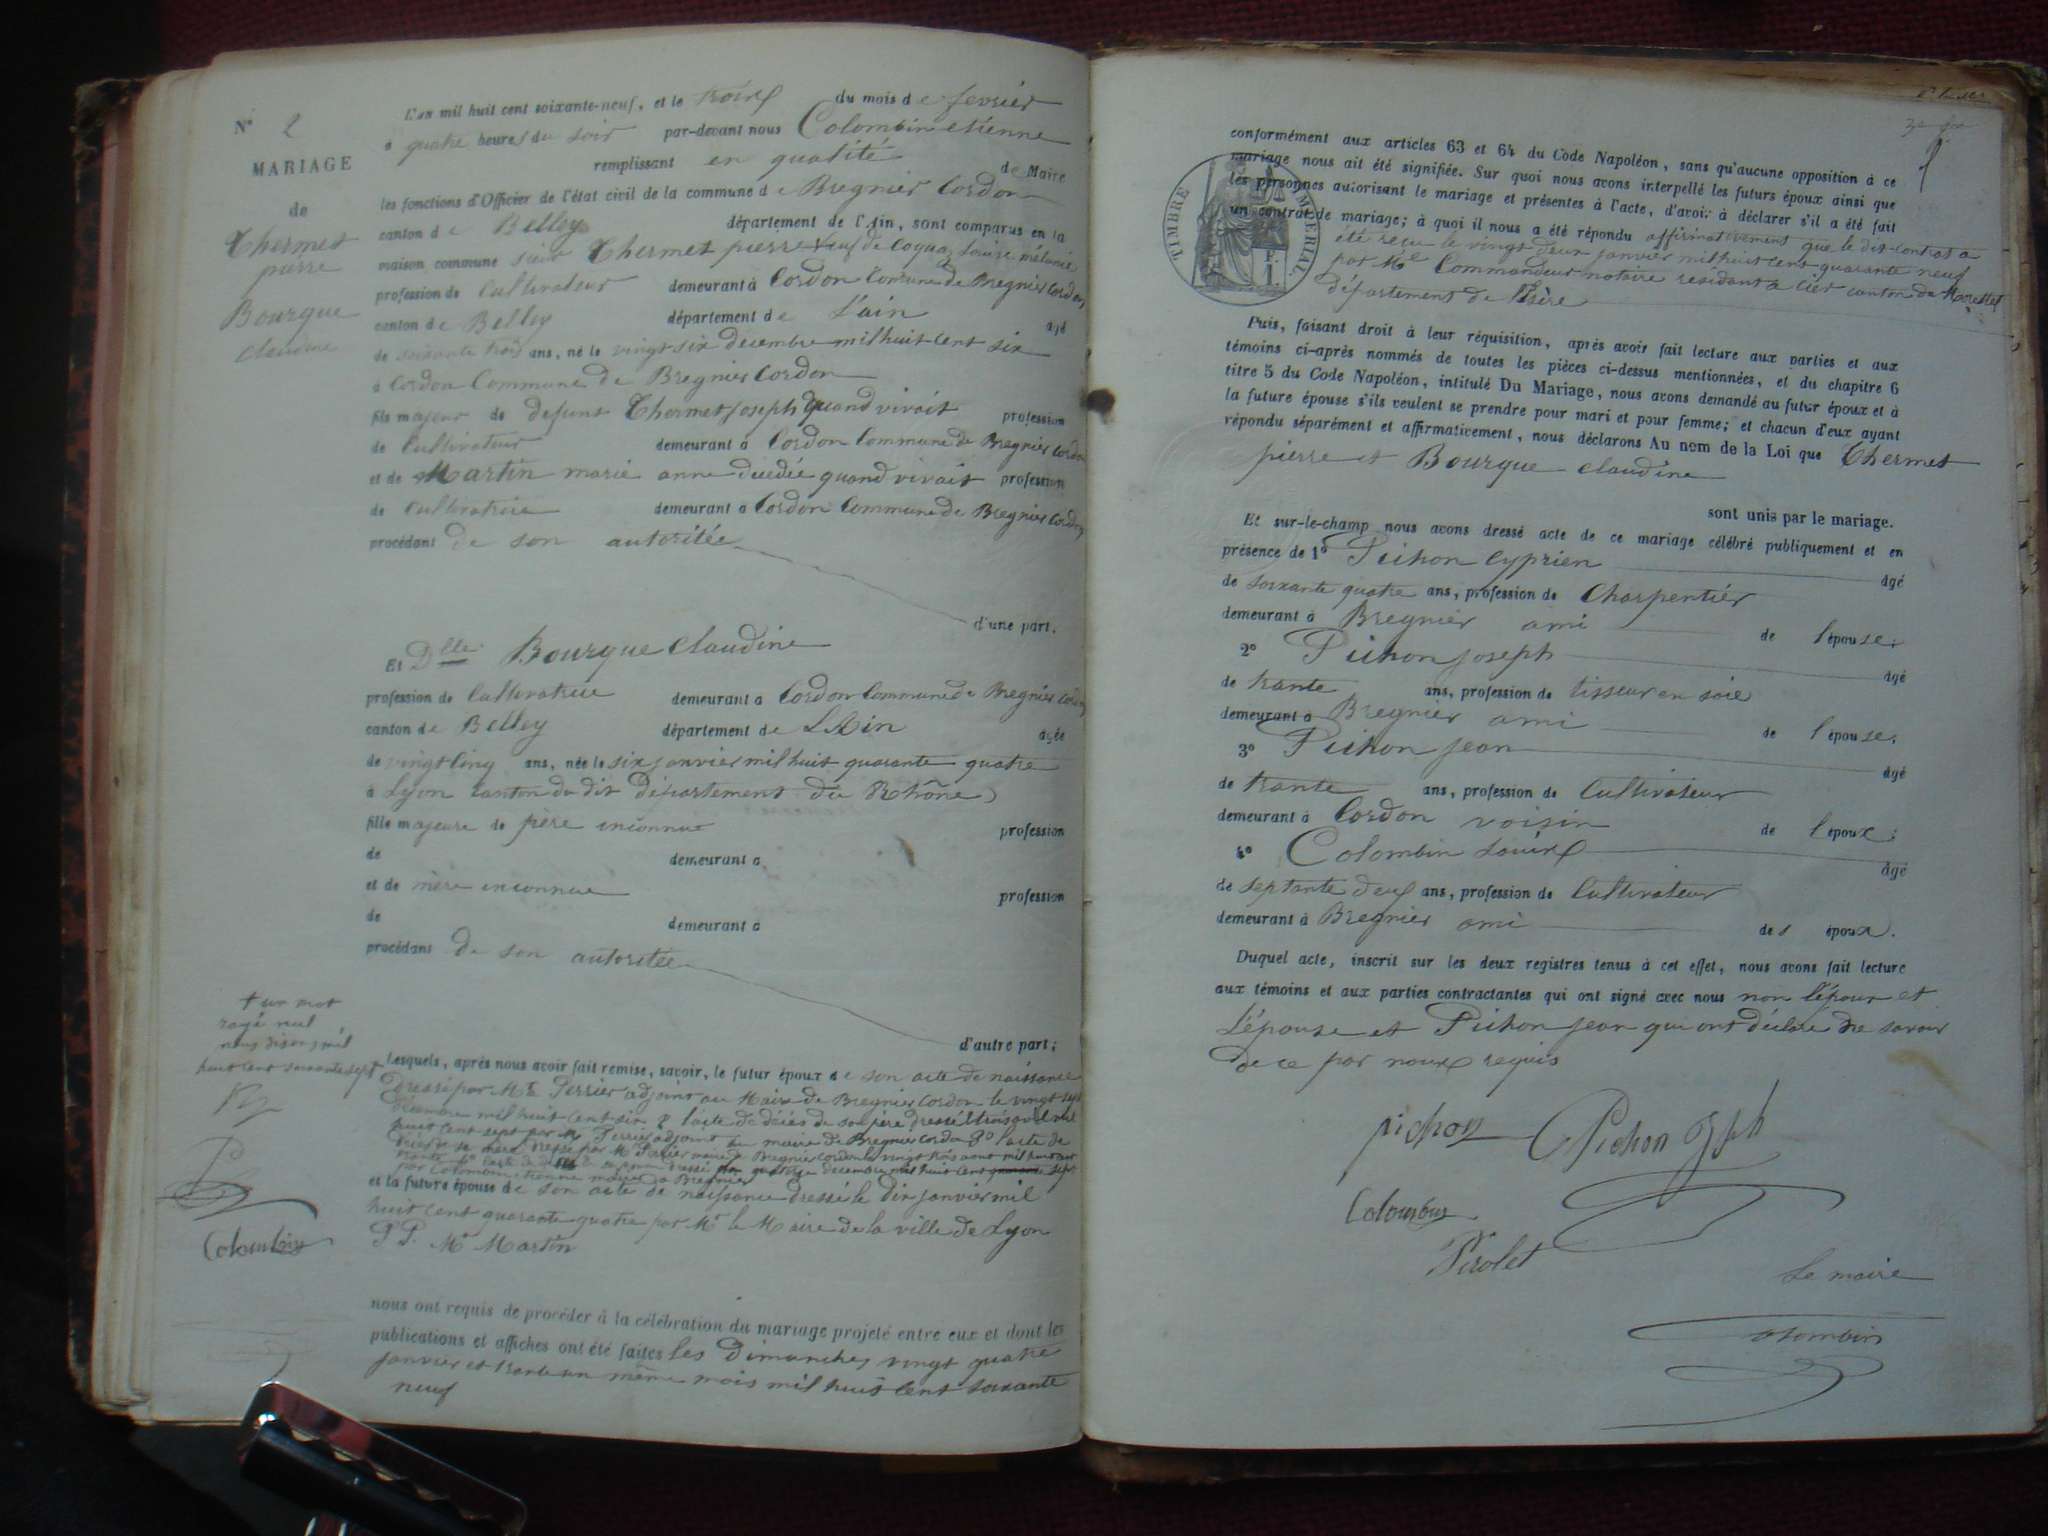 N° 2
MARIAGE
de
Thermet
pierre
Bourque
claudine
L'an mil huit cent soixante-neuf, et le trois du mois de fevrier
à quatre heures du soir par-devant nous Colombin etienne
remplissant en qualité de Maire
les fonctions d'Officier de l'état civil de la commune de Bregnier Cordon
canton de Belley département de l'Ain, sont comparus en la
maison commune sieur Thermet pierre veuf de Coquaz Louise mélanie
profession de Cultivateur demeurant à Cordon Comune de Bregnier Cordon
canton de Belley département de L'ain âgé
de soixante trois ans, né le vingt six decembre mil huit cent six
à Cordon Commune de Bregnier Cordon
fils majeur de defunt Thermet joseph quand vivait profession
de Cultivateur demeurant à Cordon Commune de Bregnier Cordon
et de Martin marie anne decedée quand vivait profession
de Cultivatrice demeurant à Cordon Commune de Bregnier Cordon
procédant de son autoritée
d'une part.
Et Dlle Bourque claudine
profession de Cultivatrice demeurant à Cordon Commune de Bregnier Cordon
canton de Belley département de L'Ain âgée
de vingt cinq ans, née le six janvier mil huit quarante quatre
à Lyon canton du dit Département du Rhône
fille majeure de père inconnue profession
de demeurant à
et de mère inconnue profession
de demeurant à
procédant de son autoritée
d'autre part;
+ un mot
rayé nul
nous disons mil
huit cent soixante sept
Colombin
Lesquels, après nous avoir fait remise, savoir, le futur époux de son acte de naissance
Dressé par Mr Perrier adjoint au Maire de Bregnier Cordon le vingt sept
décembre mil huit cent six 2° l'acte de décès de son père dressé le trois avril mil
huit cent sept par Mr Perrier adjoint au maire de Bregnier Cordon 3° l'acte de
décès de sa mère dressé par Mr maire de Bregnier Cordon le vingt trois aout mil huit cent
trente 4° l'acte de décès de sa femme dressé quatorze decembre mil huit cent quarante sept
par Colombin etienne maire à Bregnier
et la future épouse de son acte de naissance dressé le dix janvier mil
huit cent quarante quatre par Mr le Maire de la ville de Lyon
P P. Mr Martin
nous ont requis de procéder à la célébration du mariage projeté entre eux et dont les
publications et affiches ont été faites les Dimanches vingt quatre
janvier et trente un même mois mil huit cent soixante
neuf
conformément aux articles 63 et 64 du Code Napoléon, sans qu'aucune opposition à ce
mariage nous ait été signifiée. Sur quoi nous avons interpellé les futurs époux ainsi que
les personnes autorisant le mariage et présentes à l'acte, d'avoir à déclarer s'il a été fait
un contrat de mariage; à quoi il nous a été répondu affirmativement que le dit contrat a
été reçu le vingt deux janvier mil huit cent quarante neuf
par Me Commandeur notaire résidant à Ciers canton de Morestel
département de l'Isère
TIMBRE IMPÉRIAL
1 F.
Puis, faisant droit à leur réquisition, après avoir fait lecture aux parties et aux
témoins ci-après nommés de toutes les pièces ci-dessus mentionnées, et du chapitre 6
titre 5 du Code Napoléon, intitulé Du Mariage, nous avons demandé au futur époux et à
la future épouse s'ils veulent se prendre pour mari et pour femme; et chacun d'eux ayant
répondu séparément et affirmativement, nous déclarons Au nom de la Loi que Thermet
pierre et Bourque claudine
sont unis par le mariage.
Et sur-le-champ nous avons dressé acte de ce mariage célébré publiquement et en
présence de 1° Pichon Cyprien âgé
de soixante quatre ans, profession de Charpentier
demeurant à Bregnier ami de l'épouse;
2° Pichon joseph âgé
de trante ans, profession de tisseur en soie
demeurant à Bregnier ami de l'épouse;
3° Pichon jean âgé
de trante ans, profession de Cultivateur
demeurant à Cordon voisin de l'époux;
4° Colombin Louis âgé
de septante deux ans, profession de Cultivateur
demeurant à Bregnier ami des époux.
Duquel acte, inscrit sur les deux registres tenus à cet effet, nous avons fait lecture
aux témoins et aux parties contractantes qui ont signé avec nous non l'époux et
L'épouse et Pichon jean qui ont déclaré ne savoir
de ce par nous requis
pichon Pichon Jph
Colombin
Pirolet
Le maire
Colombin